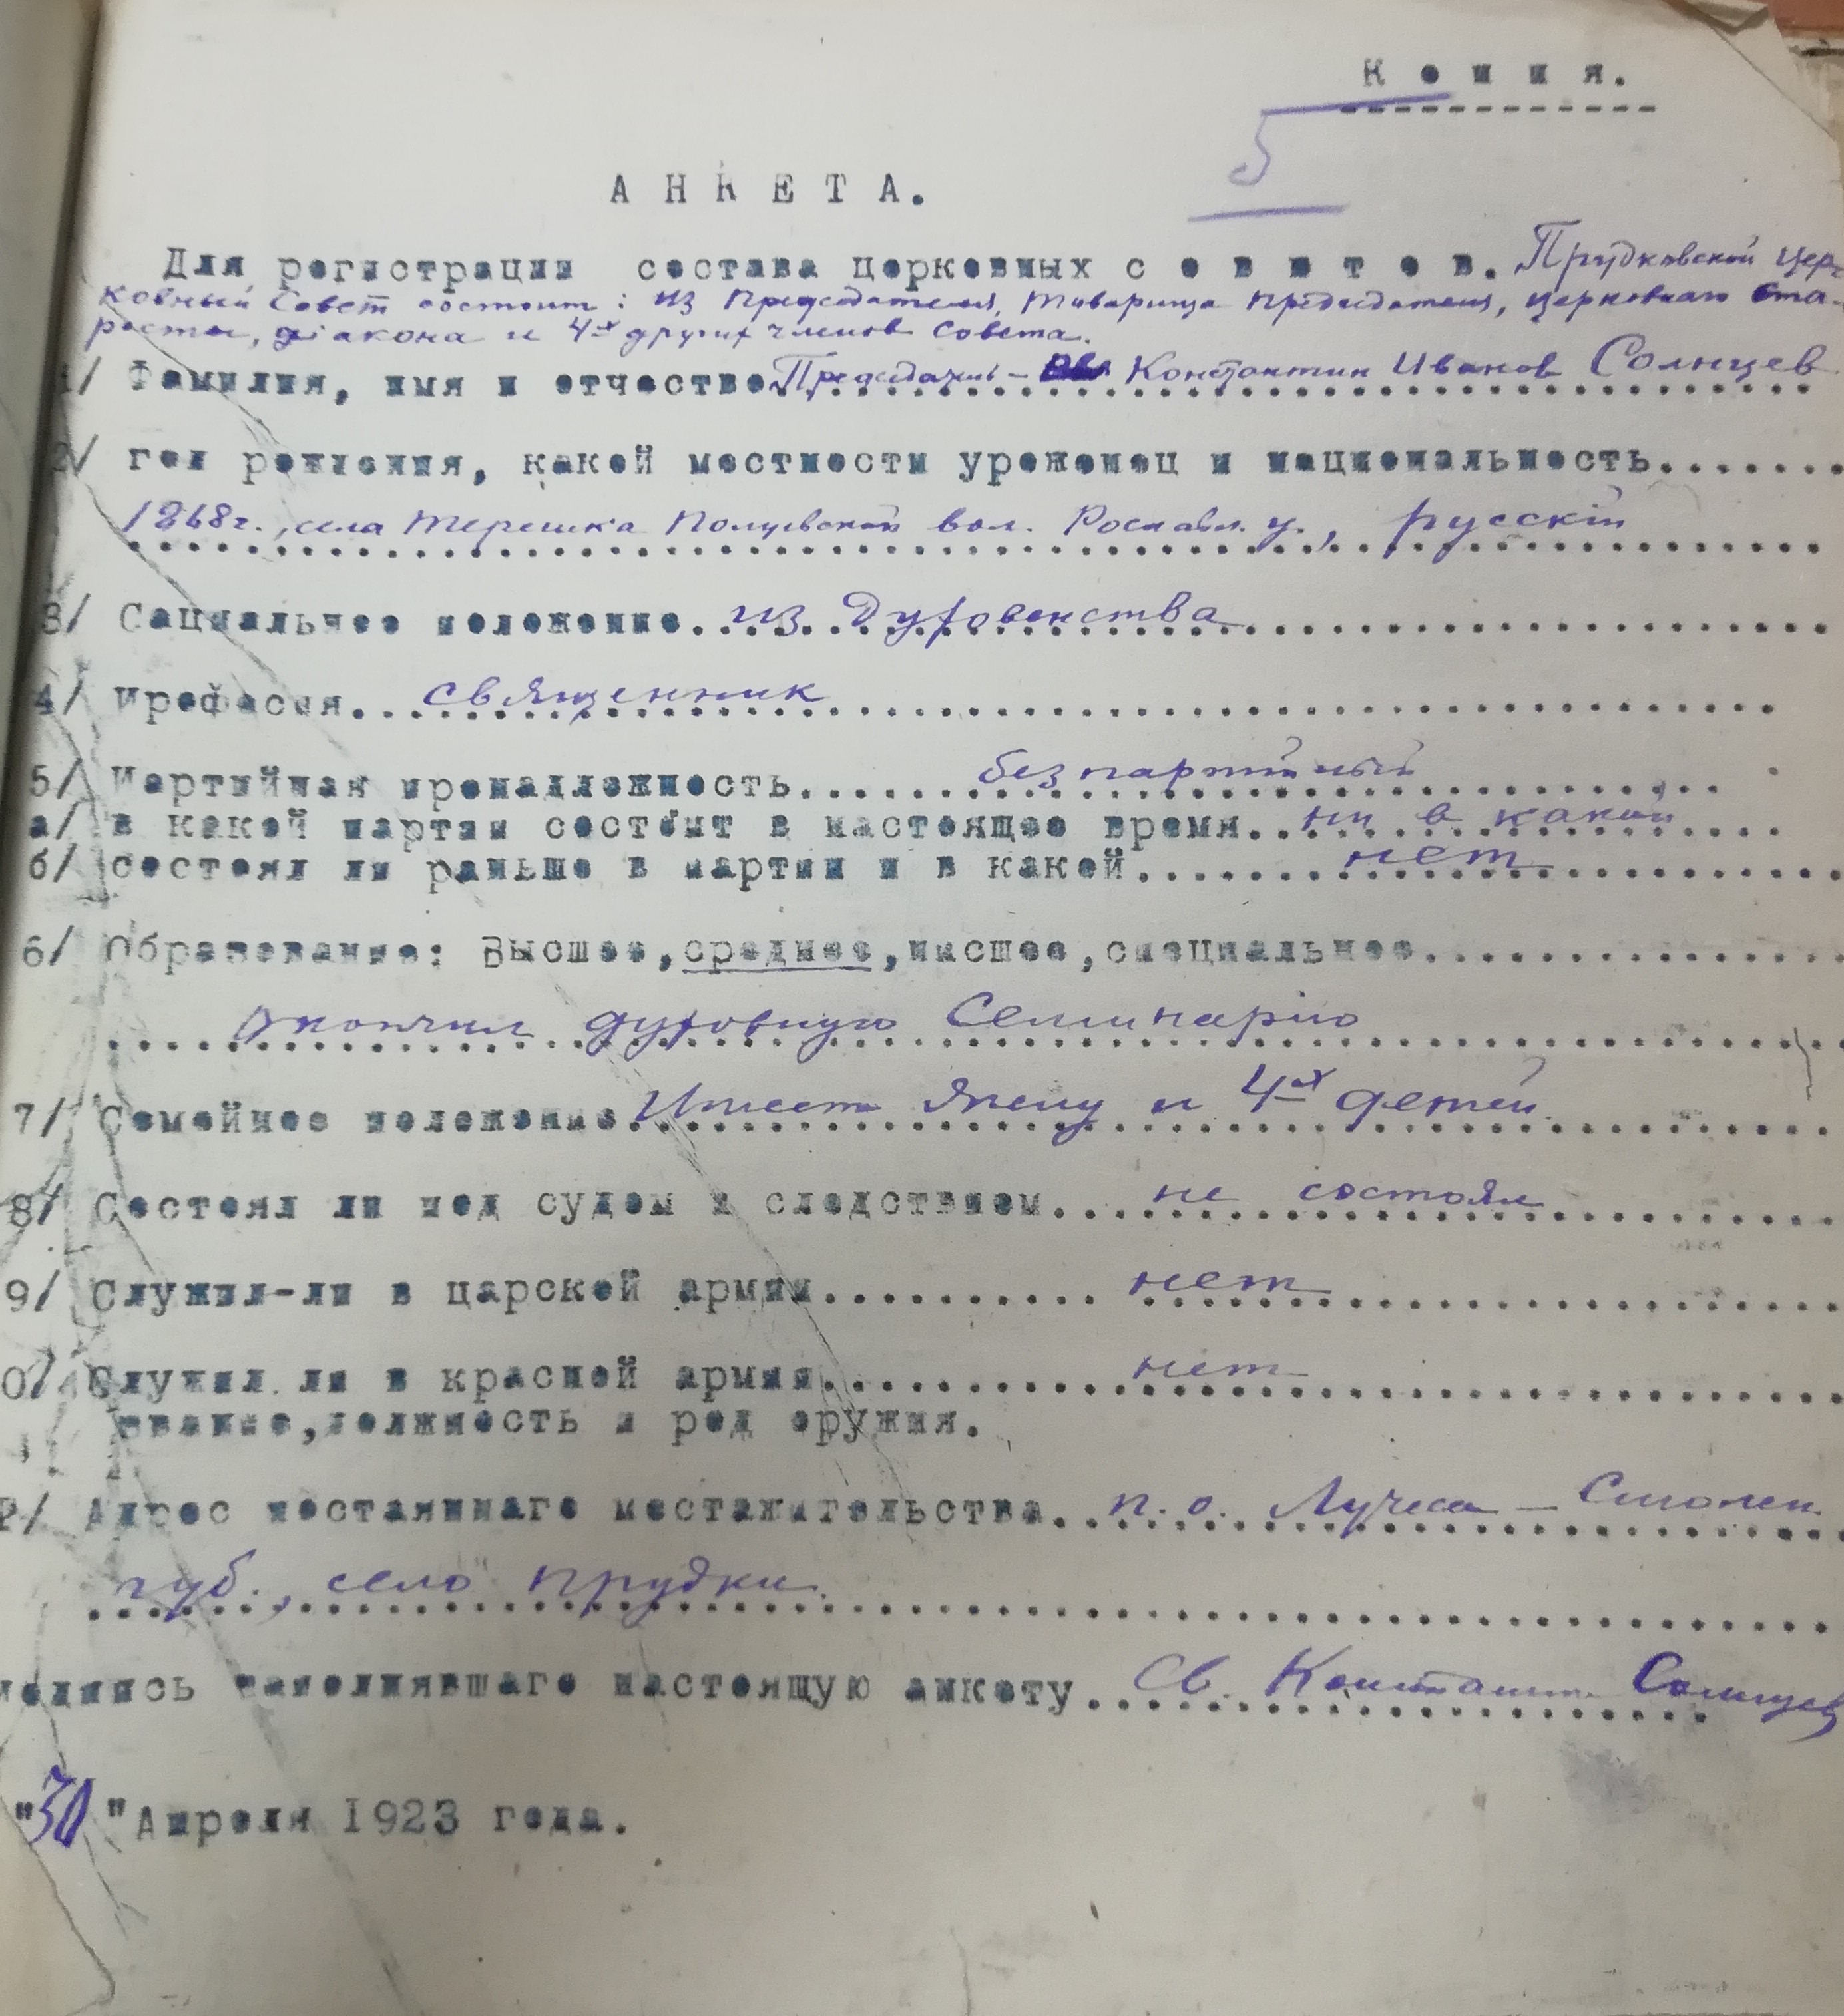 К о п и я.
5
А Н К Е Т А.
Для регистрации состава церковных с о в е т о в. Прудковский Цер-
ковный Совет состоит: из Председателя, Товарища Председателя, церковнаго ста-
росты, діакона и 4х других членов Совета.
1/ Фамилия, имя и отчество. Председатель – Константин Иванов Солнцев
2/ год рождения, какой местности уроженец и национальность.......
1868 г., села Терешка Полуевской вол. Рославл. у., русскій
3/ Сациальное положение.. из Духовенства
4/ Професия... священник
5/ Партийная преналлежность.... безпартійный
а/ в какой партии состоит в настоящее время.. ни в какой
б/ состоял ли раньше в партии и в какой.... нет
6/ Образование: Высшее, среднее, низшее, специальное..........
окончил духовную Семинарію
7/ Семейное положение. Имеет жену и 4х детей.
8/ Состоял ли под судом и следствием... не состоял
9/ Служил-ли в царской армии.......... нет
0/ Служил ли в красной армии.......... нет
звание, должность и род оружия.
Р/ Адрес постаяннаго местажительства.. п. о. Лучеса – Смолен.
губ., село Прудки.
подпись заполнявшаго настоящую анкету.. Св. Константин Солнцев
"30" Апреля 1923 года.